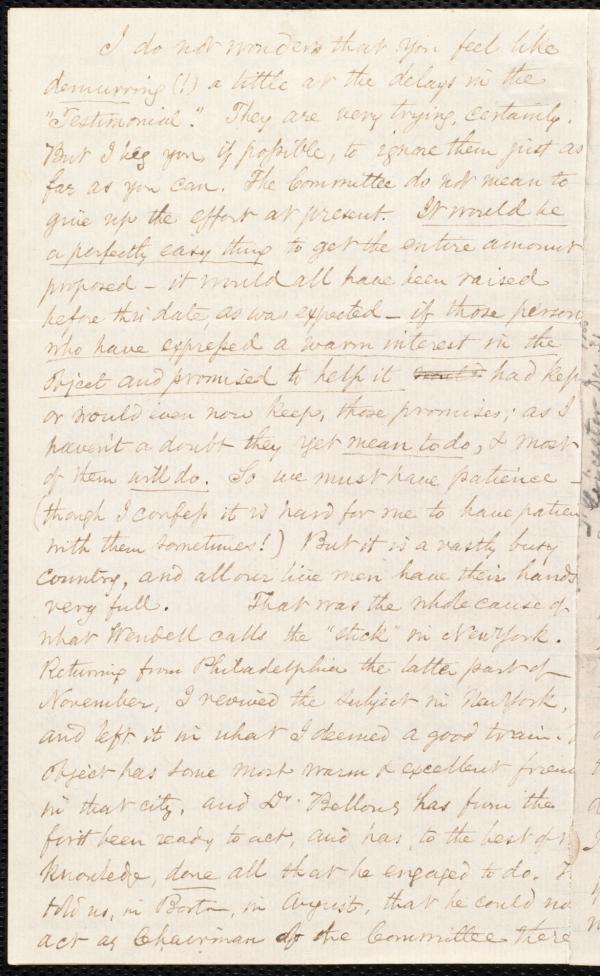 I do not wonder that you feel like
demurring (!) a little at the delays in the
"Testimonial." They are very trying, certainly.
But I beg you, if possible, to ignore them just as
far as you can. The Committee do not mean to
give up the effort at present. It would be
a perfectly easy thing to get the entire amount
proposed – it would all have been raised
before this date, as was expected – if those person
who have expressed a warm interest in the
object and promised to help it had kep
or would even now keep, those promises; as I
haven't a doubt they yet mean to do, & most
of them will do. So we must have patience –
(though I confess it is hard for me to have patien
with them sometimes!) But it is a vastly busy
Country, and all our live men have their hands
very full. That was the whole cause of
what Wendell calls the "stick" in New York.
Returning from Philadelphia the latter part of
November, I revived the subject in New York,
and left it in what I deemed a good train.
object has some most warm & excellent frien
in that city, and Dr. Bellows has from the
first been ready to act, and has, to the best of
knowledge, done all that he engaged to do.
told us, in Boston, in August, that he could no
act as Chairman of the Committee there